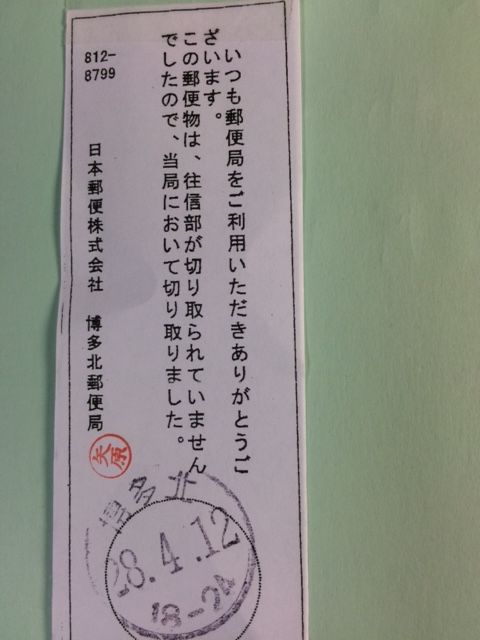 いつも郵便局をご利用いただきありがとうご
ざいます。
この郵便物は、往信部が切り取られていません
でしたので、当局において切り取りました。
812-
8799
日本郵便株式会社 博多北郵便局
矢原
博多北
28.4.12
18-24